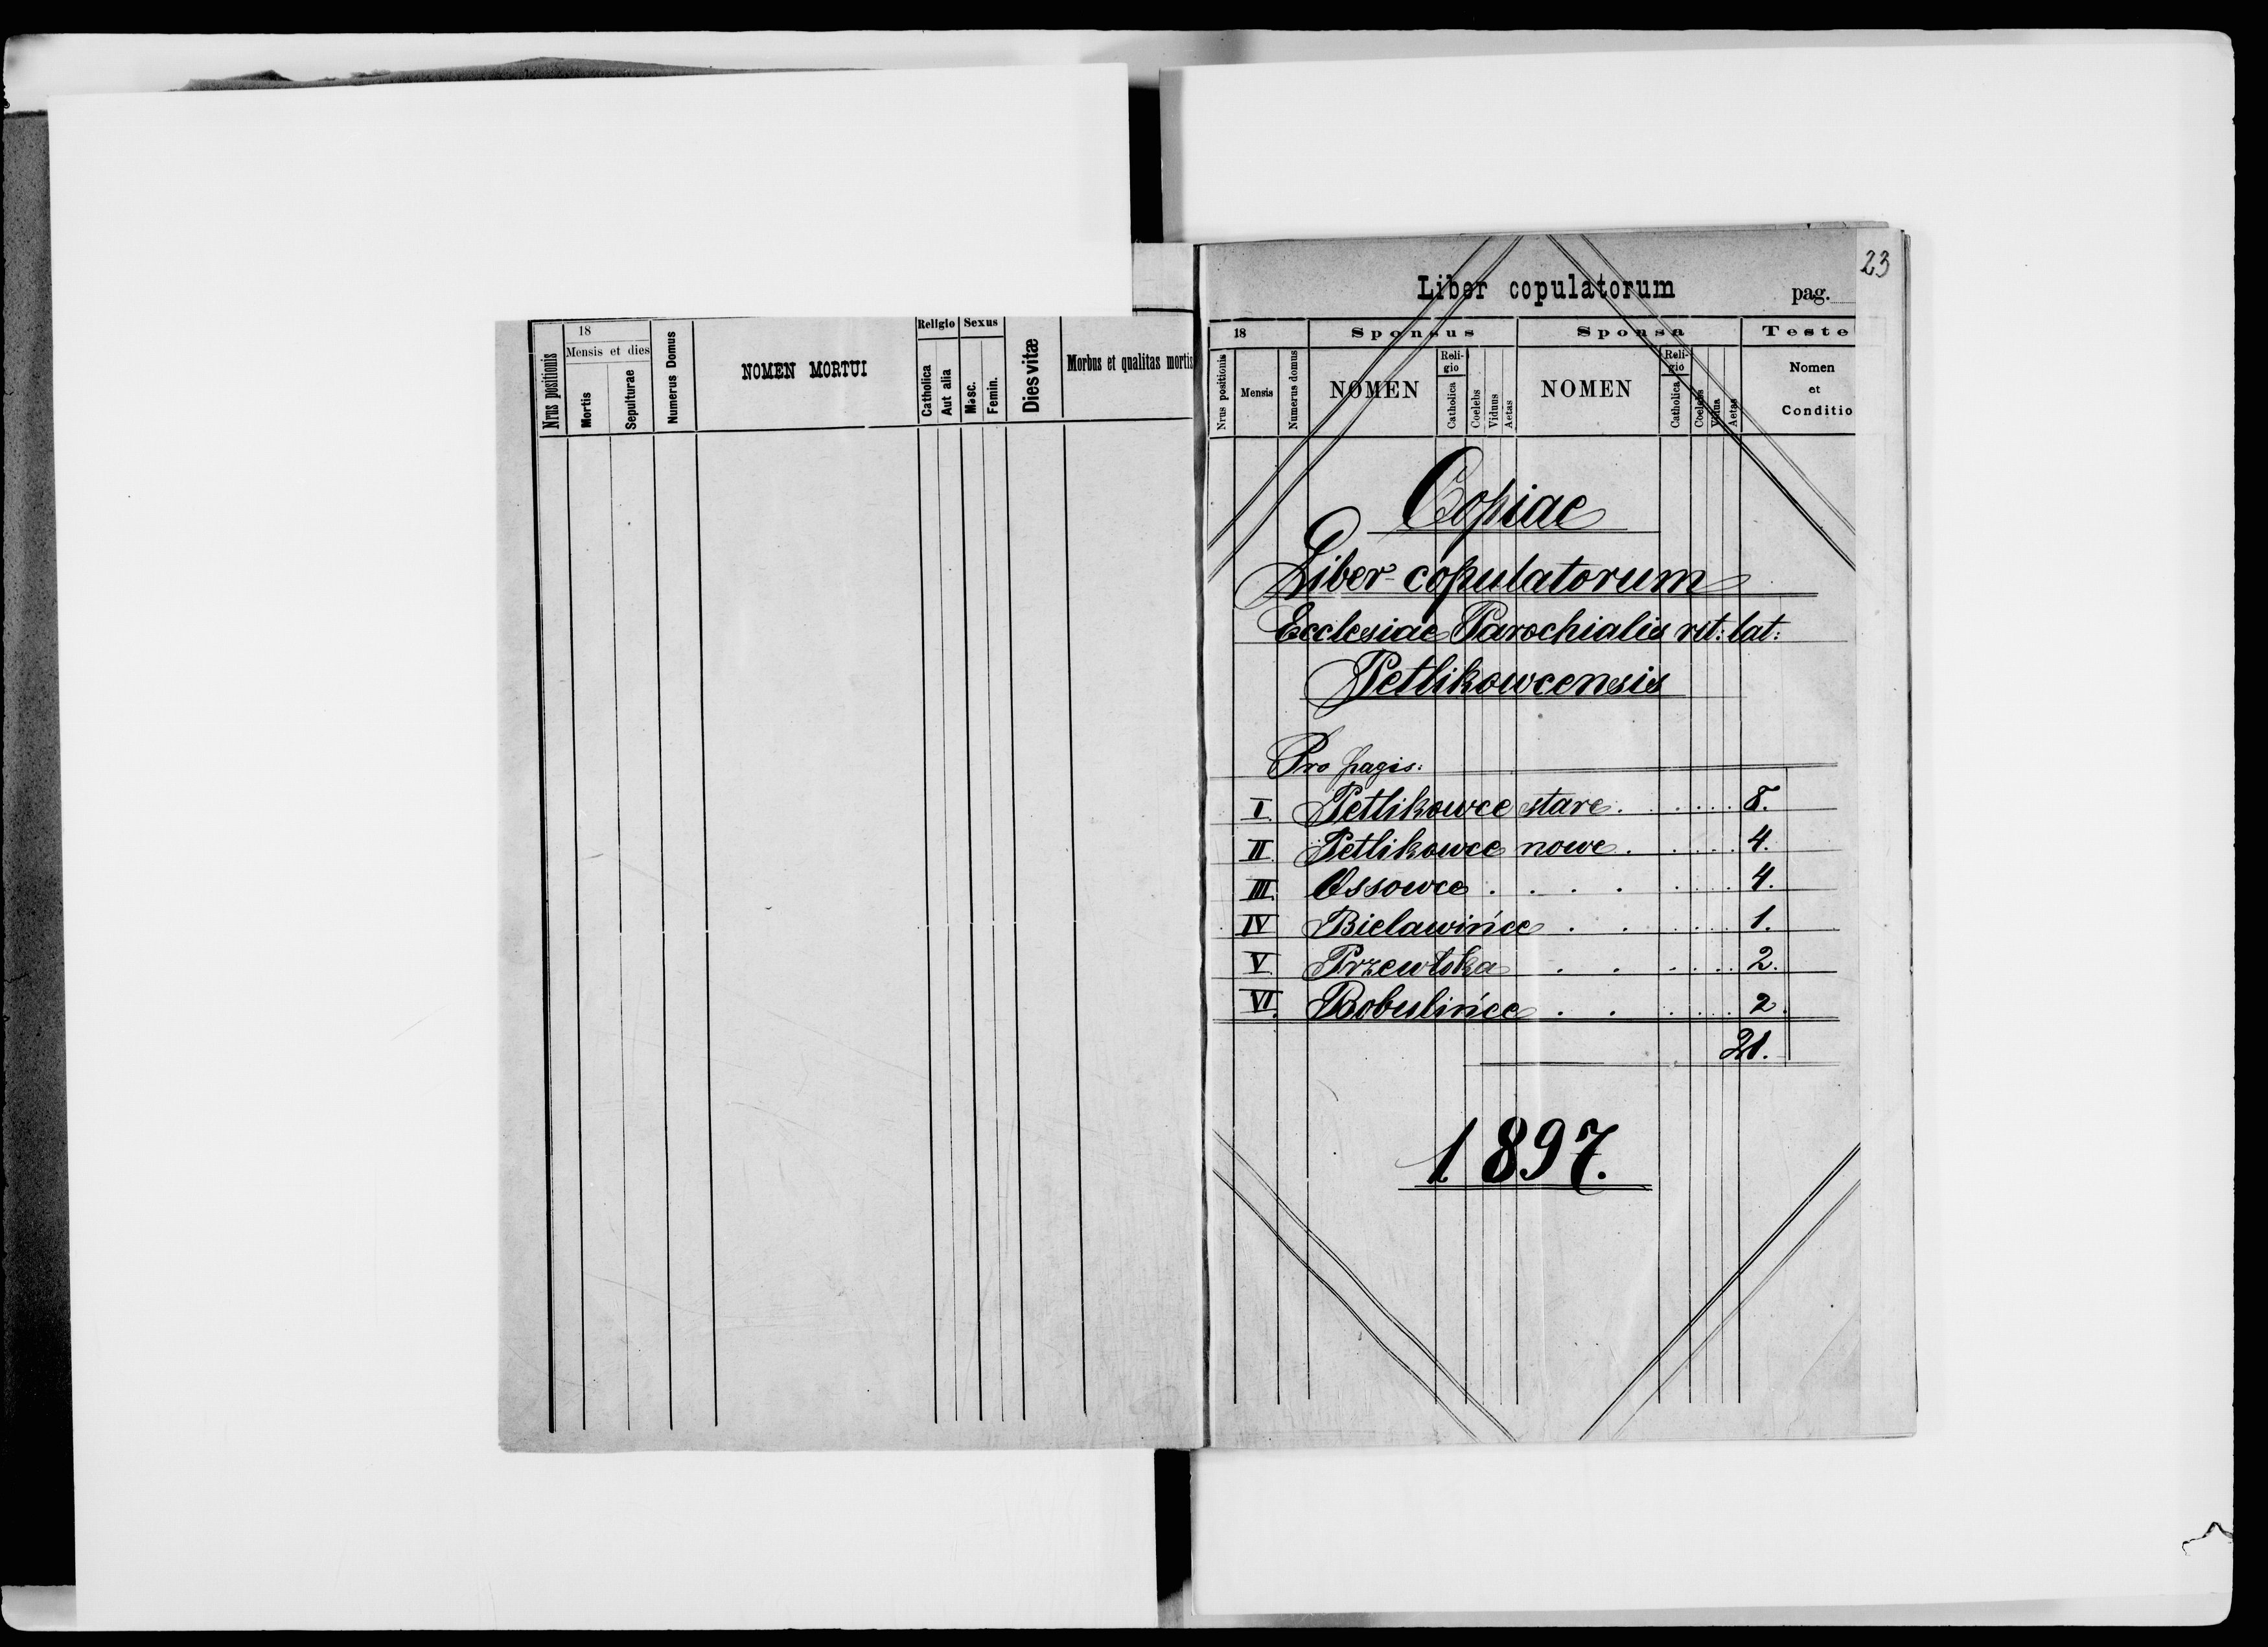 18
Religio Sexus
Mensis et dies
Nrus positionis
Mortis
Sepulturae
Numerus Domus
NOMEN MORTUI
Catholica
Aut alia
Masc.
Femin.
Dies vitæ
Morbus et qualitas mortis
23
Liber copulatorum
pag.
18
Sponsus
Sponsa
Teste
Nrus positionis
Mensis
Numerus domus
NOMEN
Reli-
gio
Catholica
Coelebs
Viduus
Aetas
NOMEN
Reli-
gio
Catholica
Coelebs
Vidua
Aetas
Nomen
et
Conditio
Copiae
Liber copulatorum
Ecclesiae Parochialis rit: lat:
Petlikowcensis
Pro pagis:
I. Petlikowce stare . . . . . 8.
II. Petlikowce nowe . . . . . 4.
III. Ossowce . . . . . . . . 4.
IV Bielawińce . . . . . . 1.
V. Przewłoka . . . . . . 2.
VI. Bobulińce . . . . . . 2.
21.
1897.